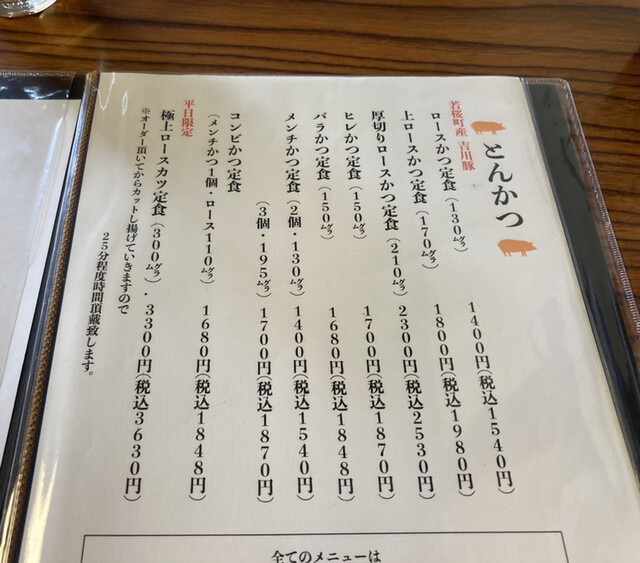 とんかつ
若桜町産 吉川豚
ロースかつ定食(130グラム) 1400円(税込1540円)
上ロースかつ定食(170グラム) 1800円(税込1980円)
厚切りロースかつ定食(210グラム) 2300円(税込2530円)
ヒレかつ定食(150グラム) 1700円(税込1870円)
バラかつ定食(150グラム) 1680円(税込1848円)
メンチかつ定食(2個・130グラム) 1400円(税込1540円)
(3個・195グラム) 1700円(税込1870円)
コンビかつ定食
(メンチかつ1個・ロース110グラム) 1680円(税込1848円)
平日限定
極上ロースカツ定食(300グラム)・3300円(税込3630円)
※オーダー頂いてからカットし揚げていきますので
25分程度時間頂戴致します。
全てのメニューは